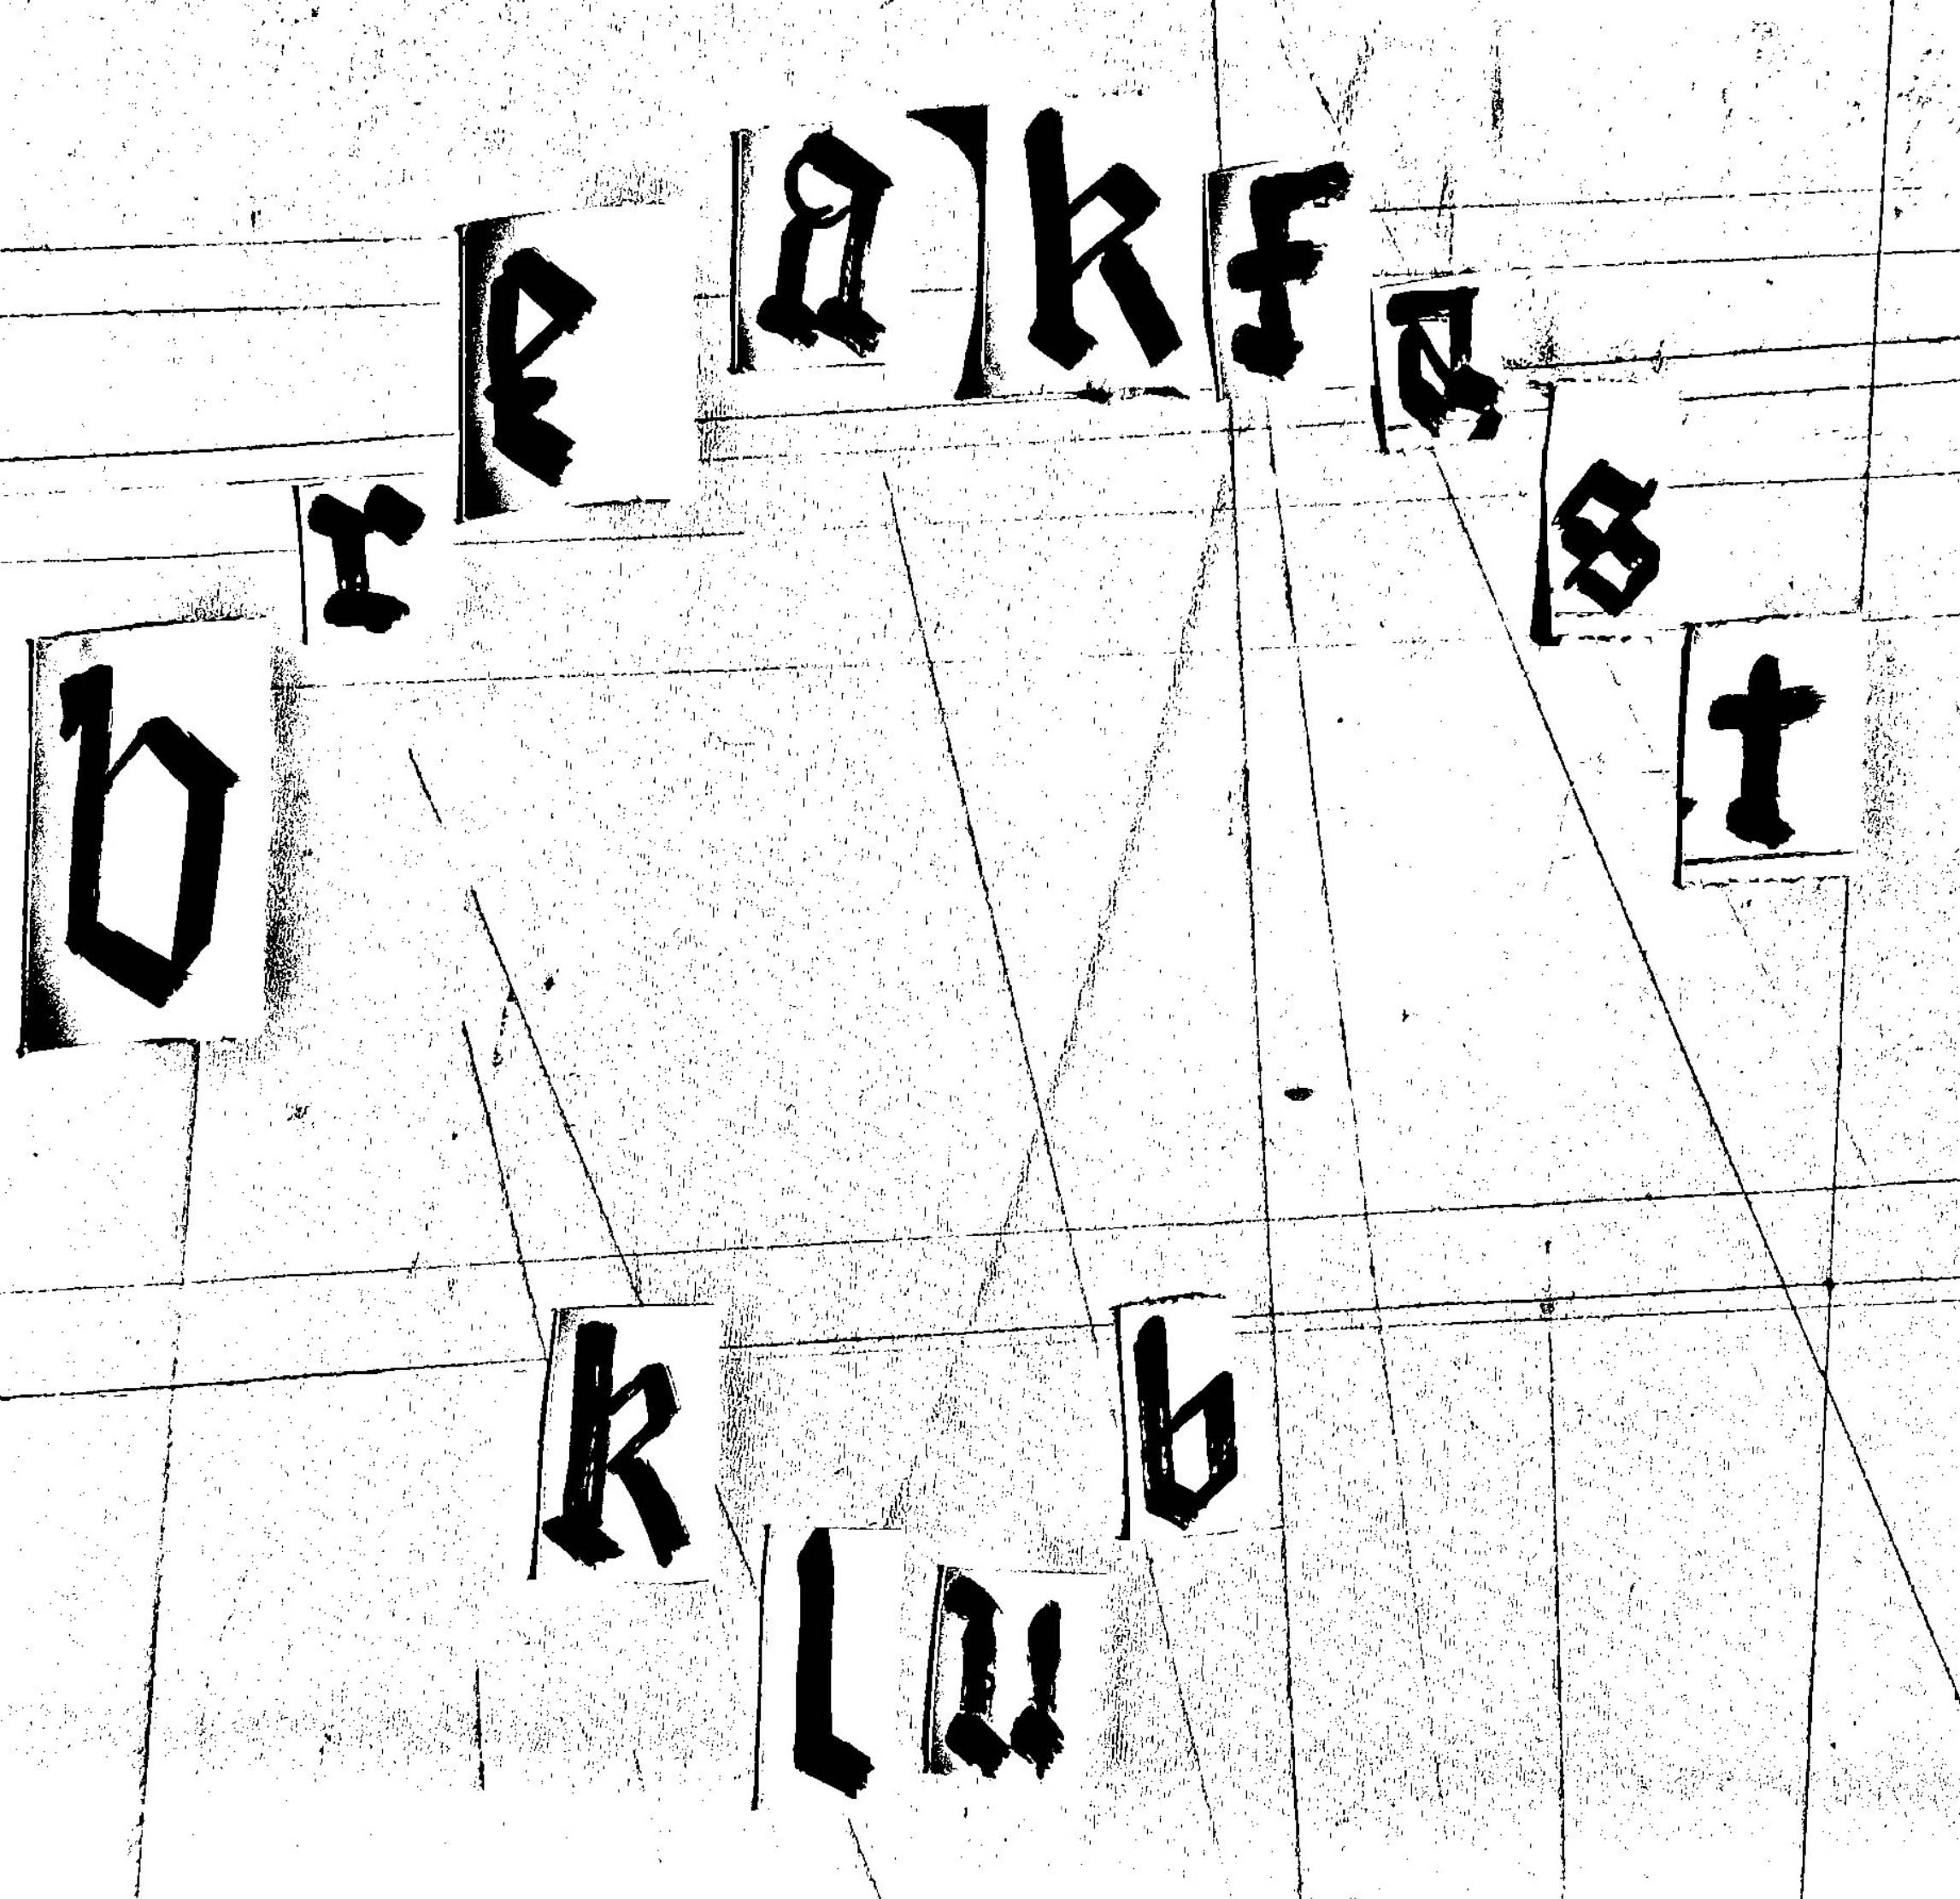 breakfast
klub